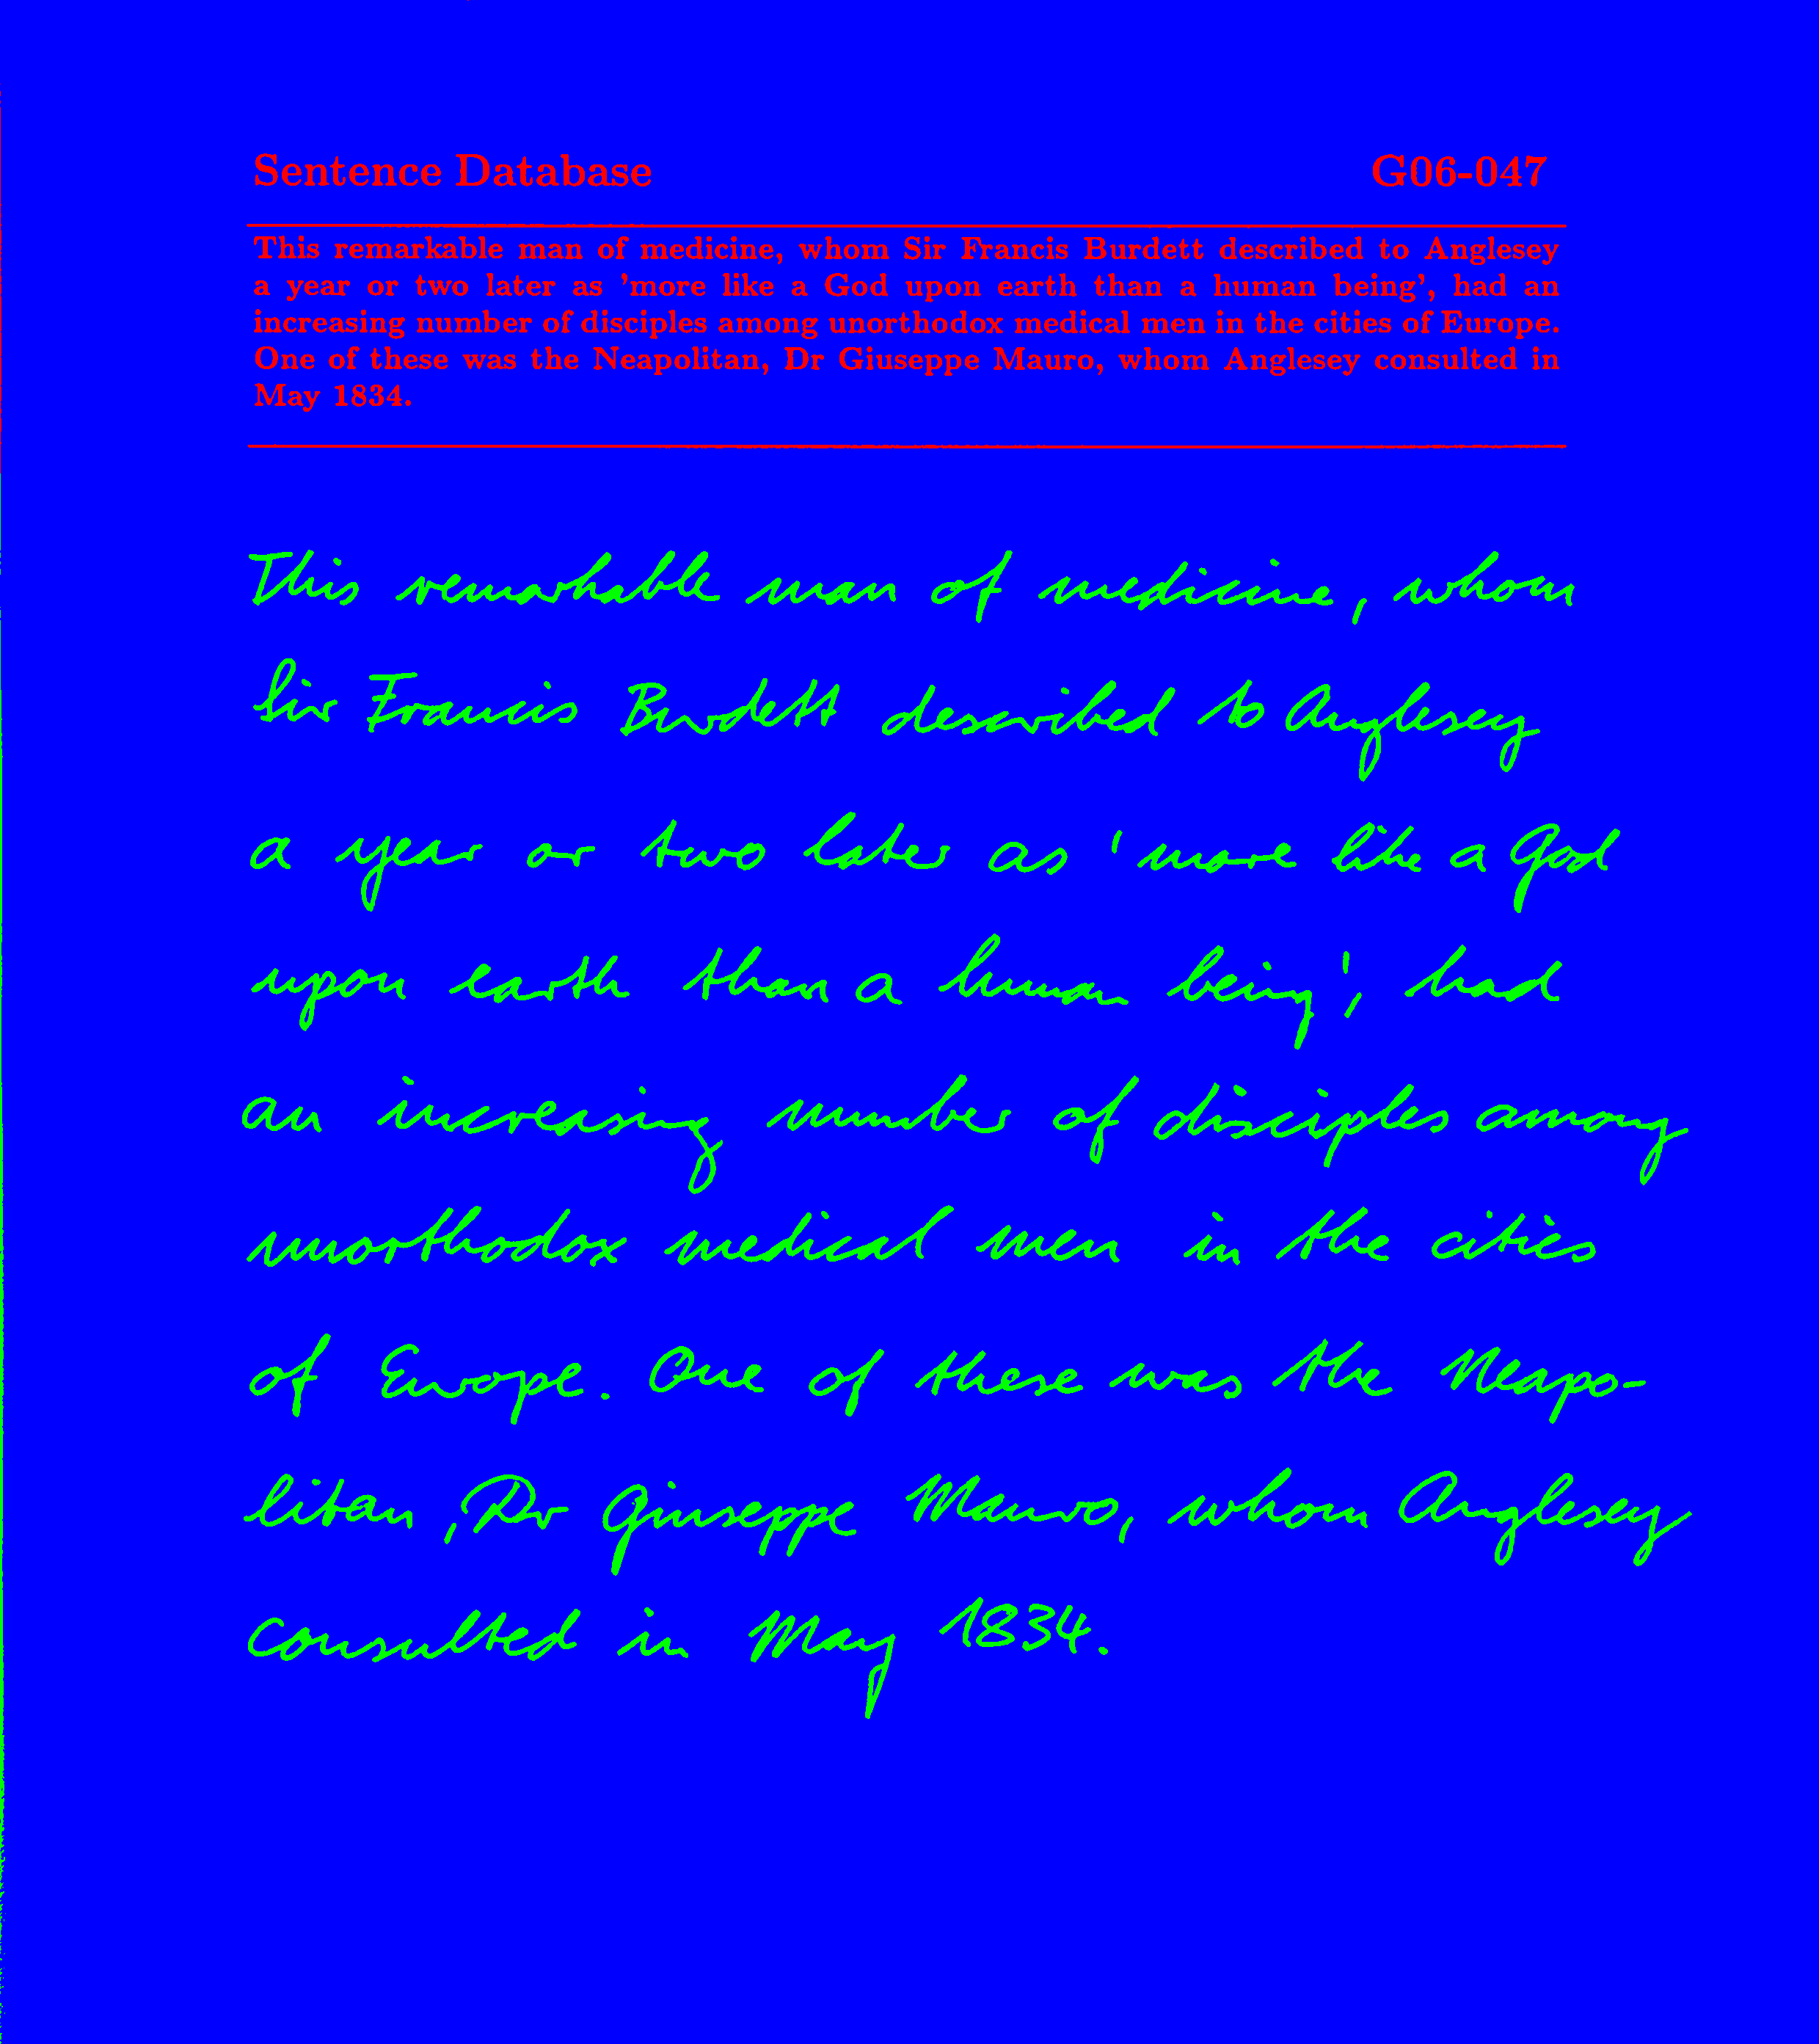 Sentence Database G06-047
This remarkable man of medicine, whom Sir Francis Burdett described to Anglesey
a year or two later as 'more like a God upon earth than a human being', had an
increasing number of disciples among unorthodox medical men in the cities of Europe.
One of these was the Neapolitan, Dr Giuseppe Mauro, whom Anglesey consulted in
May 1834.
This remarkable man of medicine, whom
Sir Francis Burdett described to Anglesey
a year or two later as 'more like a God
upon earth than a human being', had
an increasing number of disciples among
unorthodox medical men in the cities
of Europe. One of these was the Neapo-
litan, Dr Giuseppe Mauro, whom Anglesey
consulted in May 1834.